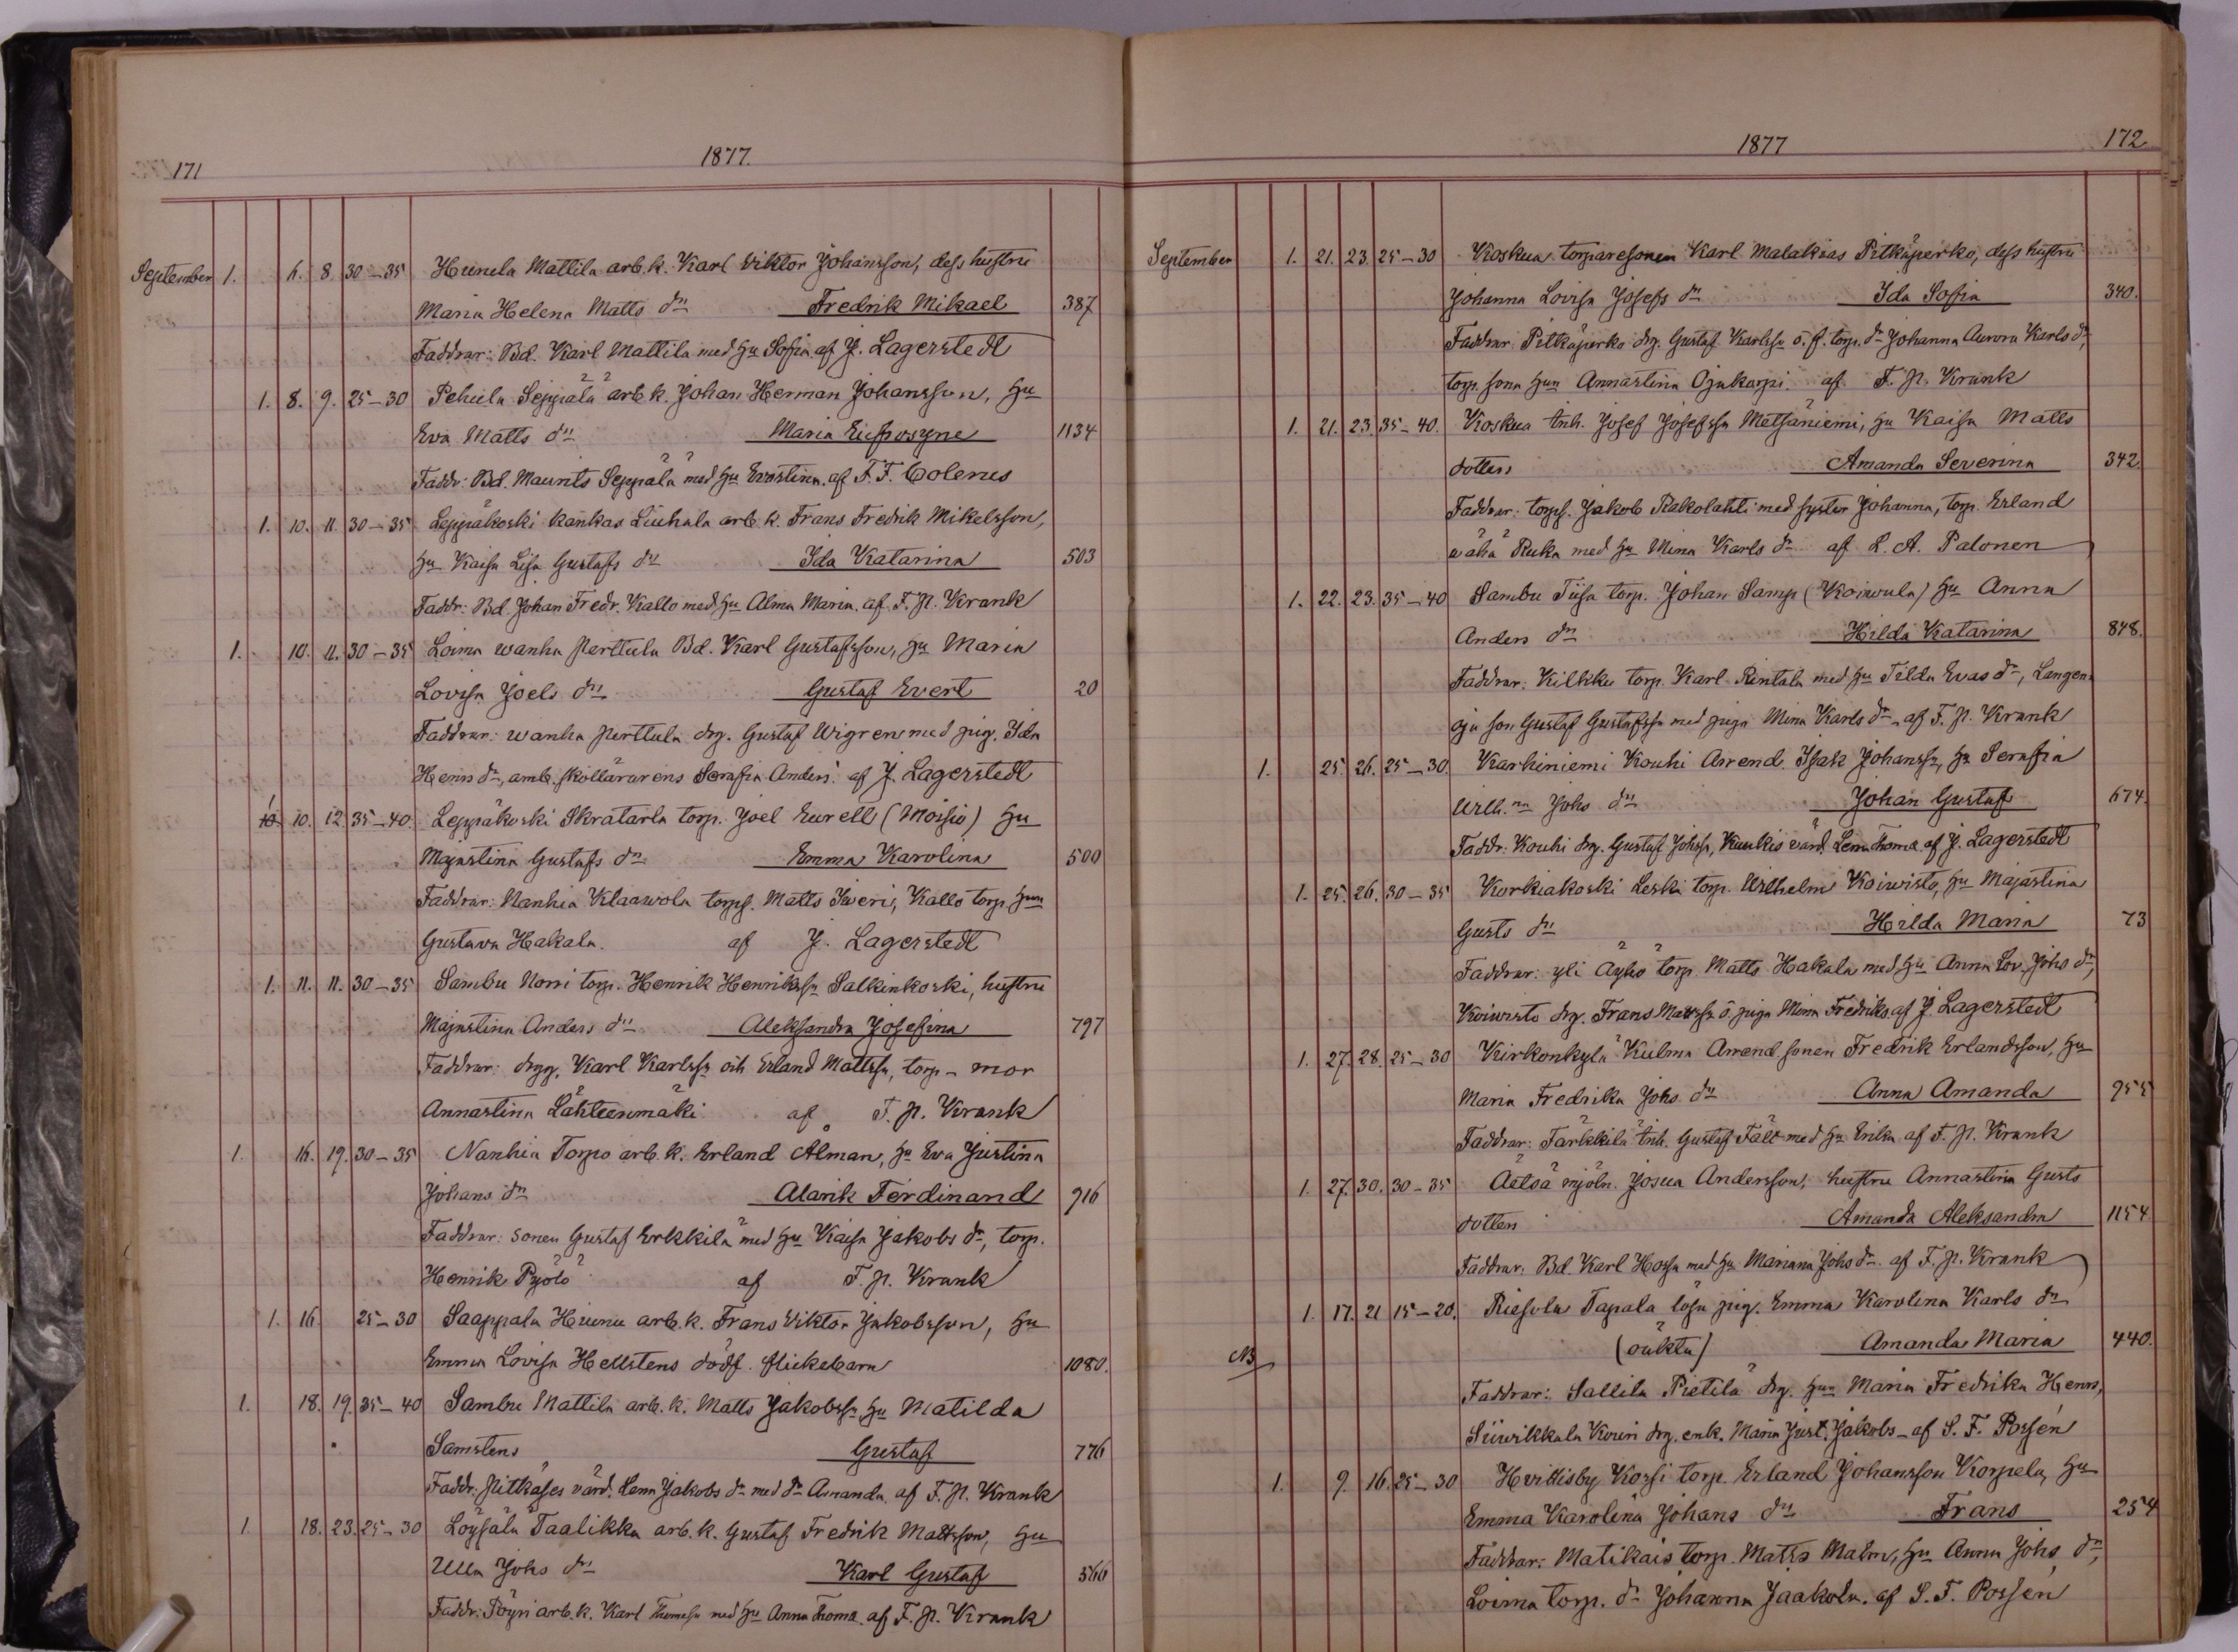 171 1877.
September 1. 6. 8. 30-35 Hunela Mattila arb. k. Karl Viktor Johansson, dess hustru
Maria Helena Matts dr Fredrik Mikael 387
Faddrar: Bd. Karl Mattila med hu Sofia. af J. Lagerstedt
1. 8. 9. 25-30 Pehula Seppälä arb. k. Johan Herman Johansson, hu
Eva Matts dr Maria Eufrosyne 1134
Faddr: Bd. Maurits Seppälä med hu Evastina. af F. F. Colerus
1. 10. 11. 30-35 Leppäkoski Kankas Liuhala arb. k. Frans Fredrik Mikelsson,
hu Kaisa Lisa Gustafs dr Ida Katarina 503
Faddr: Bd Johan Fredr. Kallo med hu Alma Maria. af F. P. Krank
1. 10. 11. 30-35 Loima wanha Perttula Bd. Karl Gustafsson, hu Maria
Lovisa Joels dr Gustaf Evert 20
Faddrar: wanha Perttula drg. Gustaf Wigren med pig. Ida
Henrs dr, amb. skollärarens Serafia Anders. af J. Lagerstedt
1 10. 12. 35-40. Leppäkoski Skratarla torp. Joel Eurell (Moisio) hu
Majastina Gustafs dr Emma Karolina 500
Faddrar: Nanhia Klaawola torps. Matts Iweri, Kallo torp. hun
Gustava Hakala. af J. Lagerstedt
1. 11. 11. 30-35 Sambu Norri torp. Henrik Henrikssn Salkinkoski, hustru
Majastina Anders dr Aleksandra Josefina 797
Faddrar: drgg. Karl Karlssn och Erland Mattssn, torp-mor
Annastina Lähteenmäki af F. P. Krank
1. 16. 19. 30-35 Nanhia Torpo arb. k. Erland Ålman, hu Eva Justina
Johans dr Alarik Ferdinand 916
Faddrar: sonen Gustaf Erkkilä med hu Kaisa Jakobs dr, torp.
Henrik Pyölö af F. P. Krank
1. 16. 25-30 Saappala Hiunu arb. k. Frans Viktor Jakobsson, hu
Emma Lovisa Hellstens dödf. flickebarn 1080.
1. 18. 19. 35-40 Sambu Mattila arb. k. Matts Jakobssn hu Matilda
Samstens Gustaf 776
Faddr: Pitkäjes värd. Lena Jakobs dr med dr Amanda. af F. P. Krank
1. 18. 23. 25-30 Löysälä Taalikka arb. k. Gustaf Fredrik Mattsson, hu
Ulla Johs dr Karl Gustaf 566
Faddr: Pöyri arb. k. Karl Thomassn med hu Anna Thoma. af F. P. Krank
1877 172
September 1. 21. 23. 25-30 Koskua torparesonen Karl Malakias Pitkäperko, dess hustru
Johanna Lovisa Josefs dr Ida Sofia 340.
Faddrar: Pitkäperko drg. Gustaf Karlssn o. s. torp. dr Johanna Aurora Karls dr,
torp. sona hun Annastina Ojakorpi. af F. P. Krank
1. 21. 23. 35-40. Koskua inh. Josef Josefssn Metsäniemi, hu Kaisa Matts
dotters Amanda Severina 342.
Faddrar: torps. Jakob Rakolahti med syster Johanna, torp. Erland
wähä Ruka med hu Mina Karls dr af L. A. Palonen
1. 22. 23. 35-40 Sambu Tiisa torp. Johan Samp (Koiwula) hu Anna
Anders dr Hilda Katarina 848.
Faddrar: Kilkku torp. Karl Rintala med hu Tilda Evas dr, Langen-
oja son Gustaf Gustafssn med piga Mina Karls dr. af F. P. Krank
1. 25. 26. 25-30. Karhiniemi Kouhi Arrend. Isak Johanssn, hu Serafia
Wilh.na Johs dr Johan Gustaf 674.
Faddr: Kouhi drg. Gustaf Johssn, Kuukis värd. Lena Thoma. af J. Lagerstedt
1. 25. 26. 30-35 Korkiakoski Leski torp. Wilhelm Koiwisto, hu Majastina
Gusts dr Hilda Maria 73
Faddrar: yli Äyhö torp. Matts Hakala med hu Anna Lov. Johs dr,
Koiwisto drg. Frans Matssn o. piga Mina Fredriks. af J. Lagerstedt
1. 27. 28. 25-30 Kirkonkylä Kulma Arrend. sonen Fredrik Erlandsson, hu
Maria Fredrika Johs dr Anna Amanda 955
Faddrar: Tärkkilä inh. Gustaf Fält med hu Erika af F. P. Krank
1. 27. 30. 30-35 Äetsä mjöln. Josua Andersson, hustru Annastina Gusts
dotter Amanda Aleksandra 1154.
Faddrar: Bd. Karl Hossa med hu Mariana Johs dr. af F. P. Krank
1. 17. 21 15-20. Riesola Tapala lösa pig. Emma Karolina Karls dr
NB (oäkta) Amanda Maria 440.
Faddrar: Sallila Pietilä drg. hun Maria Fredrika Henrs,
Suwikkala Kouri drg. enk. Maria Just. Jakobs. af S. F. Possén
1. 9. 16. 25-30 Hvittisby Korsi torp. Erland Johansson Korpela, hu
Emma Karolina Johans dr Frans 254
Faddrar: Matikais torp. Matts Malm, hu Anna Johs dr,
Loima torp. dr Johanna Jaakola. af S. F. Possén